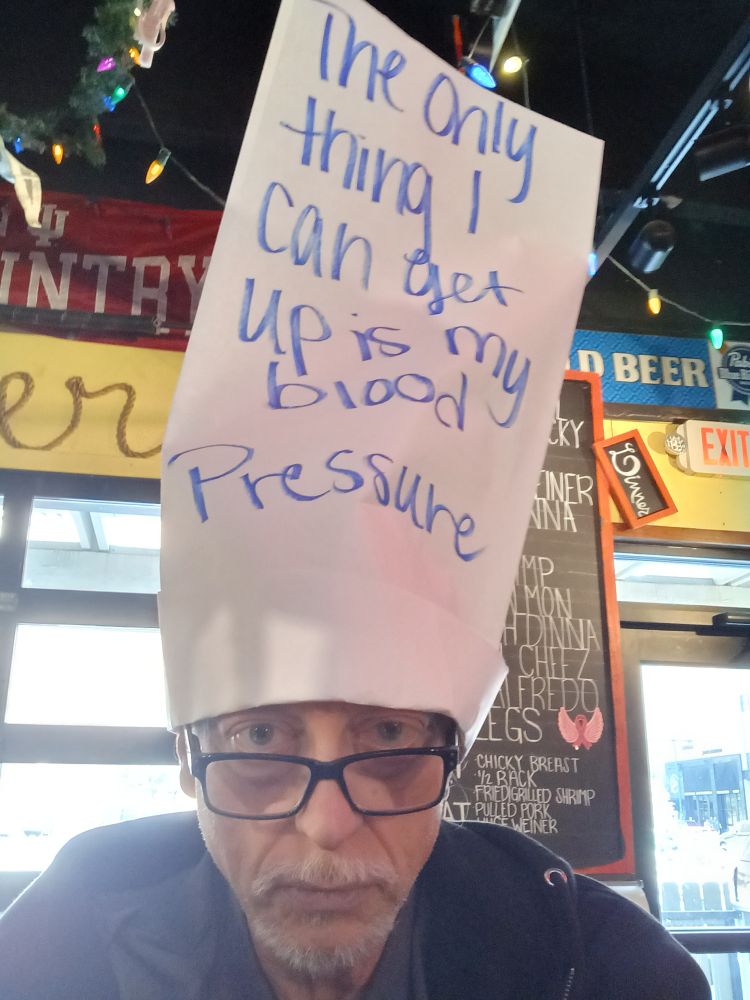 The only
thing I
can get
up is my
blood
Pressure
IU
NTRY
er
D BEER
Pabst
Blue Ribbon
EXIT
Dinner
CKY
EINER
NNA
MP
MON
H DINNA
CHEEZ
ALFREDO
LEGS
CHICKY BREAST
1/2 RACK
FRIED/GRILLED SHRIMP
PULLED PORK
HUGE WEINER